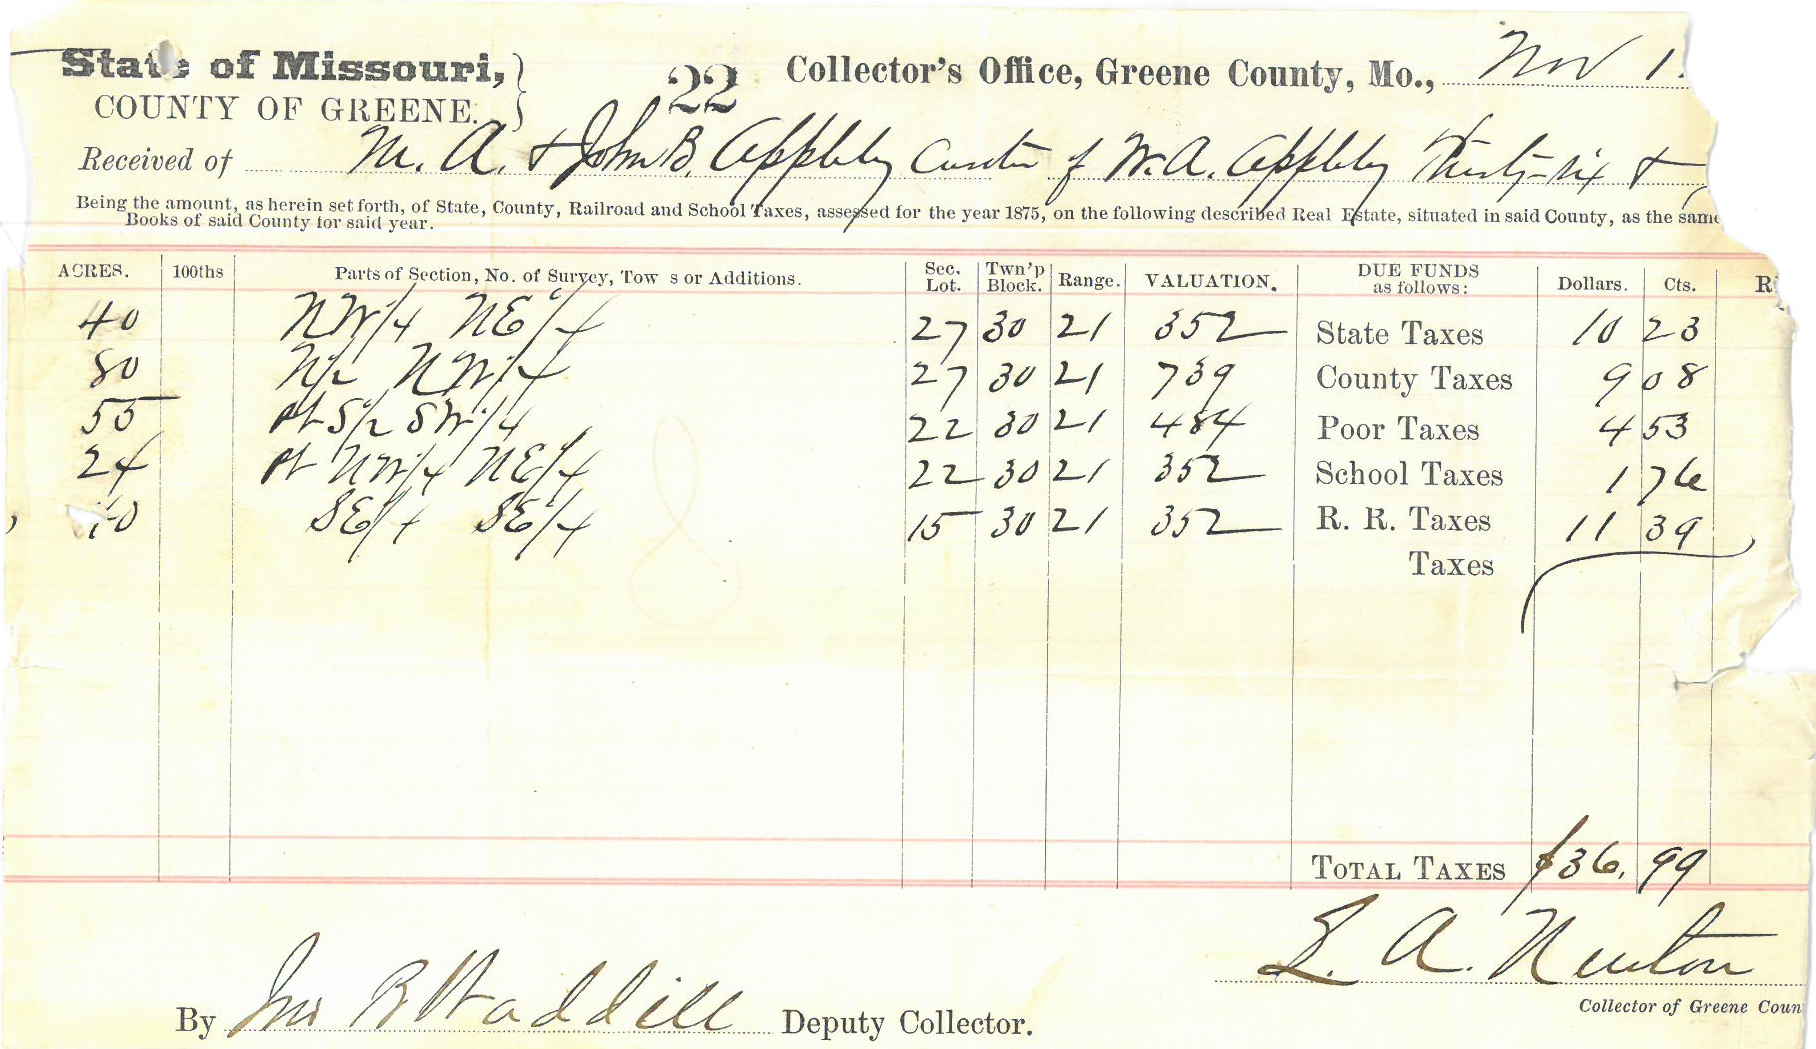 State of Missouri, 22 Collector's Office, Greene County, Mo., Nov 1.
COUNTY OF GREENE.
Received of M. A. & John B. Appleby Curator of W. A. Appleby Thirty-six &
Being the amount, as herein set forth, of State, County, Railroad and School Taxes, assessed for the year 1875, on the following described Real Estate, situated in said County, as the same
Books of said County for said year.
ACRES. 100ths Parts of Section, No. of Survey, Tow s or Additions. Sec. Lot. Twn'p Block. Range. VALUATION. DUE FUNDS as follows: Dollars. Cts.
40 NW1/4 NE1/4 27 30 21 352 State Taxes 10 23
80 N1/2 NW1/4 27 30 21 739 County Taxes 9 08
55 Pt S1/2 SW1/4 22 30 21 484 Poor Taxes 4 53
24 Pt NW1/4 NE1/4 22 30 21 352 School Taxes 1 76
40 SE1/4 SE1/4 15 30 21 352 R. R. Taxes 11 39
Taxes
TOTAL TAXES $36.99
A. Newton
Collector of Greene Coun
By Jno R Waddill Deputy Collector.